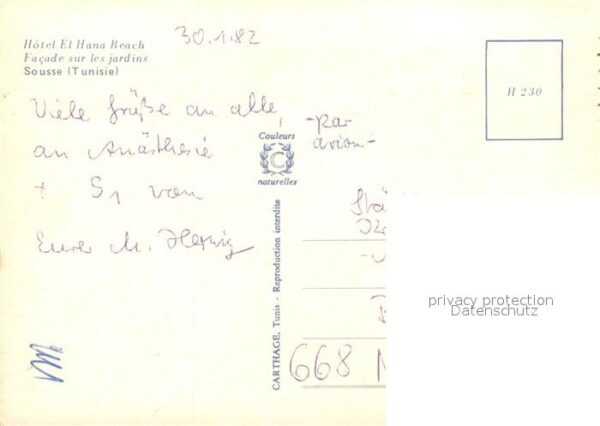 30.1.82
Hôtel El Hana Beach
Façade sur les jardins
Sousse (Tunisie)
H 230
Viele Grüße an alle,
an Anästhesie
+ S1 von
Eurer M.
-par
avion-
Couleurs
C
naturelles
CARTHAGE, Tunis - Reproduction interdite
668 N
privacy protection
Datenschutz